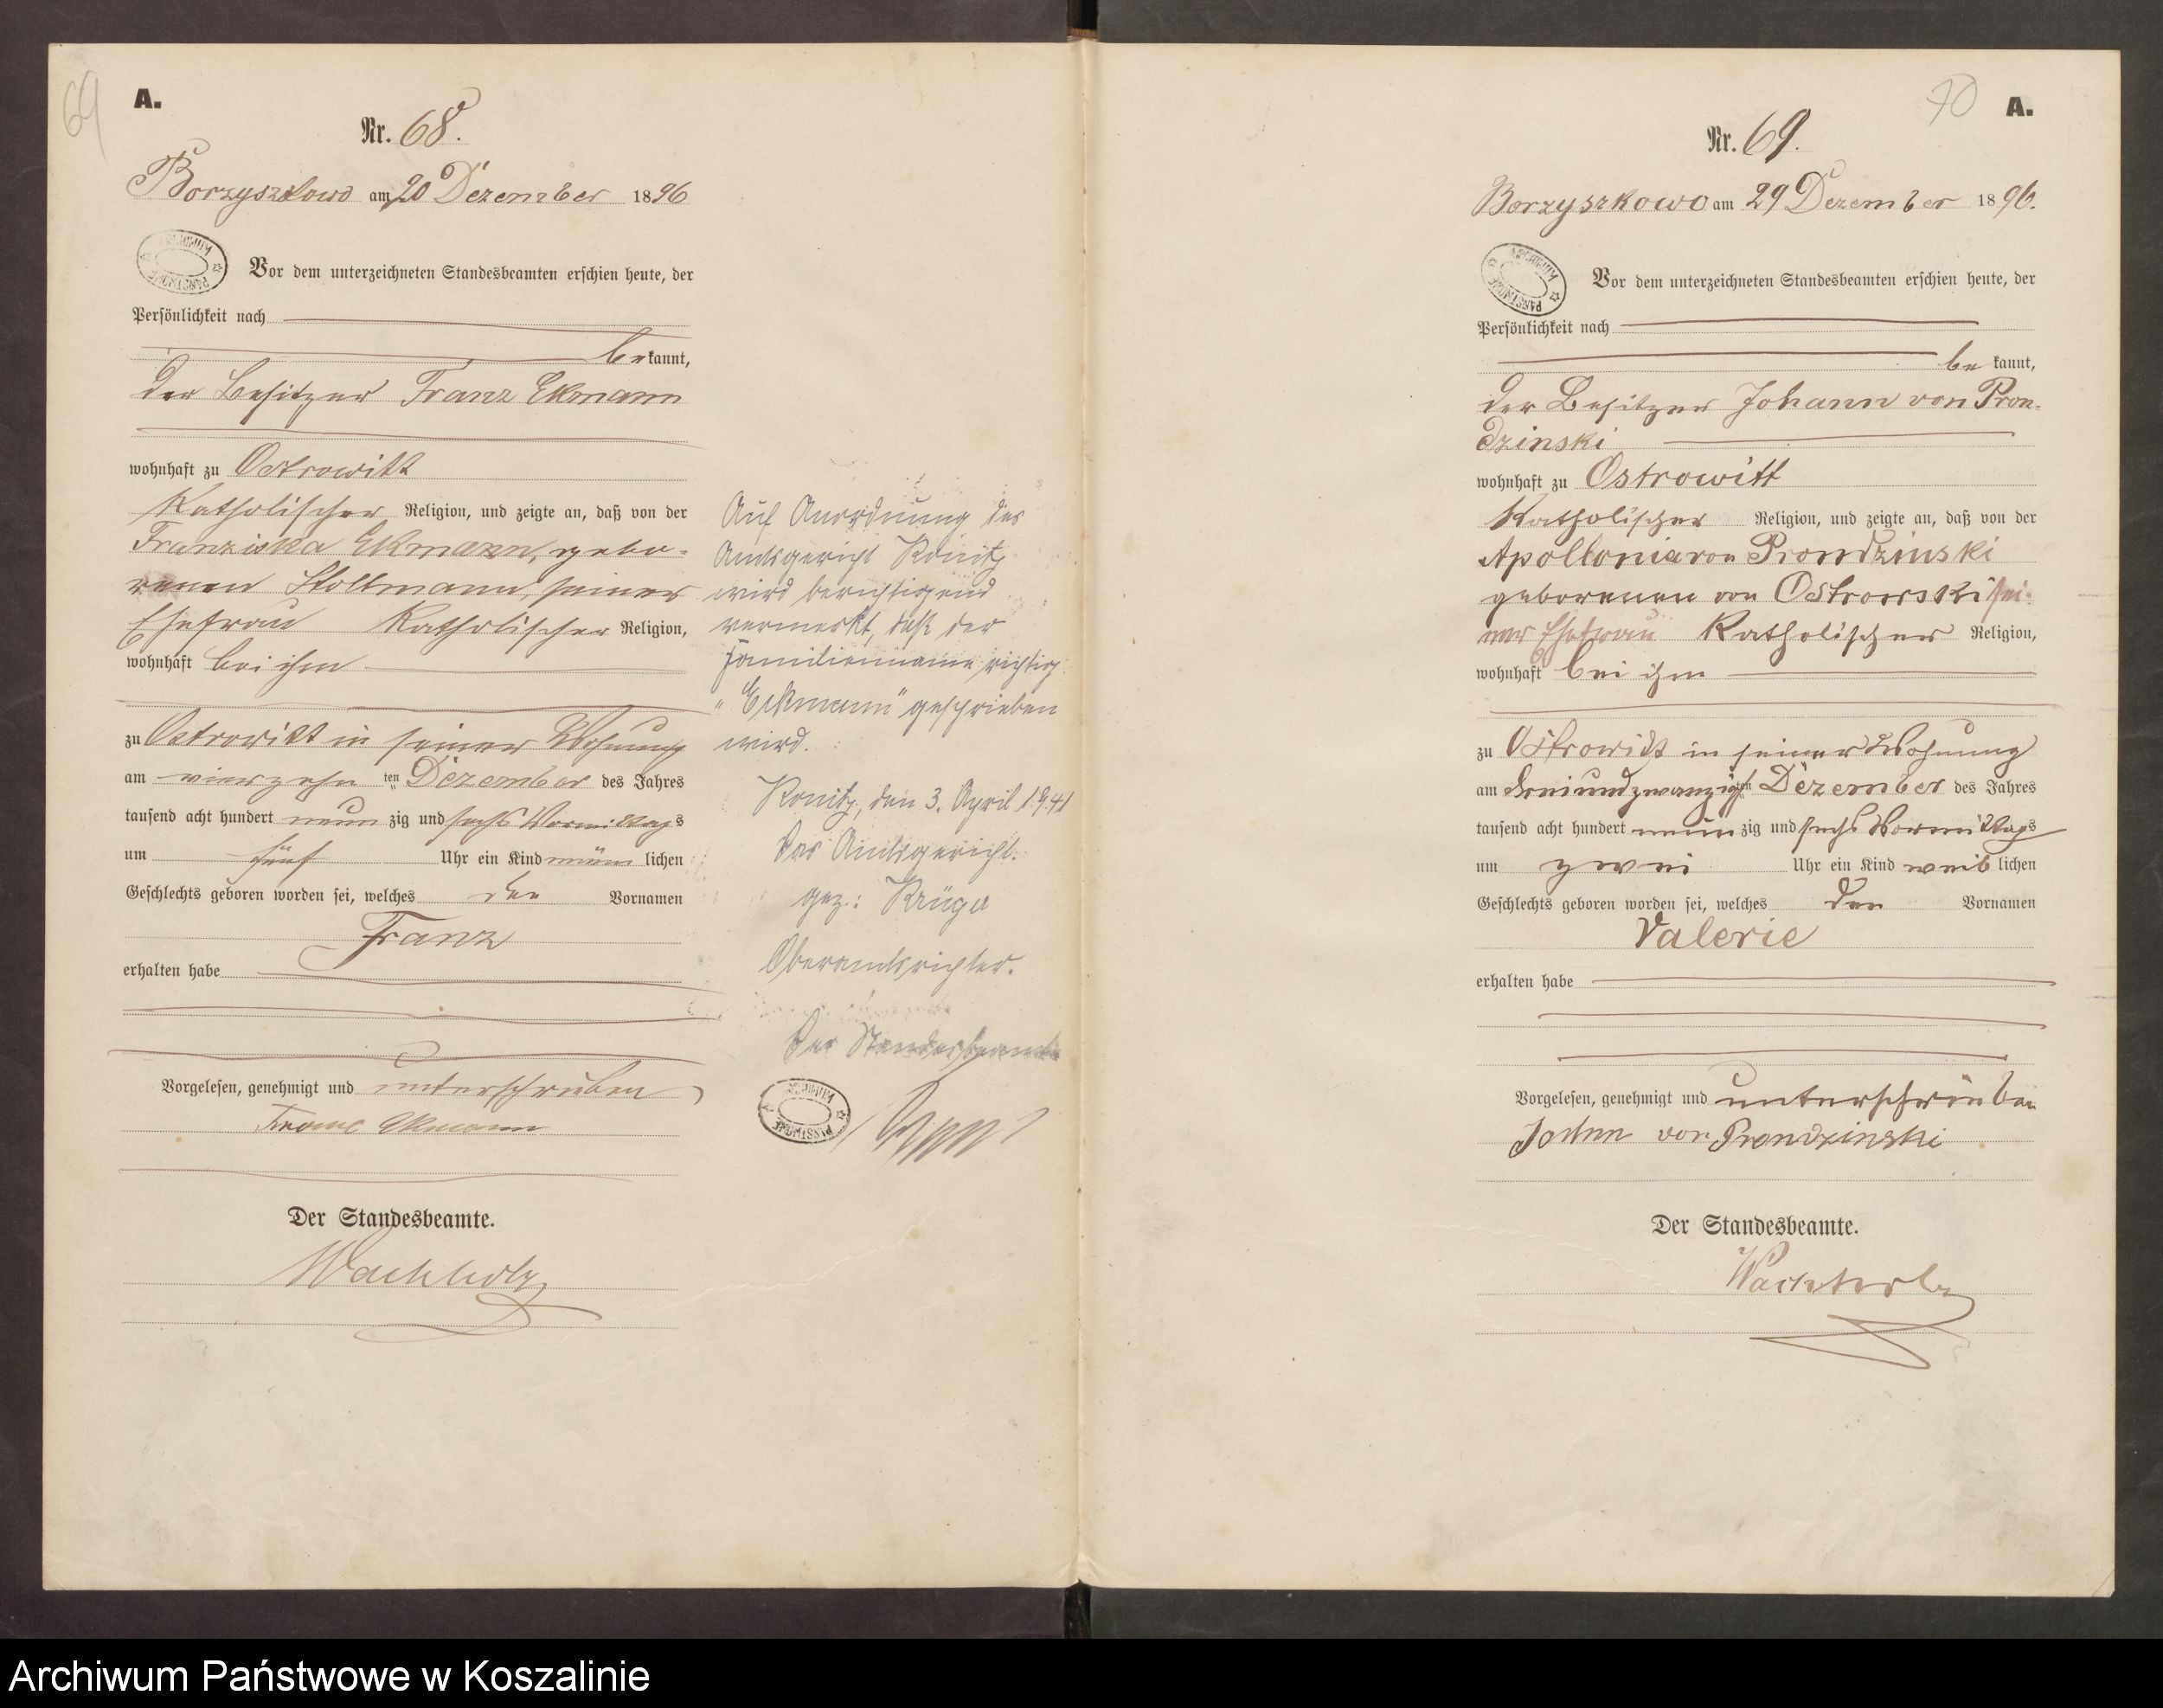 64
A.
Nr. 68.
Borzyszkowo am 20 Dezember 1896
ARCHIWUM PAŃSTWOWE
Vor dem unterzeichneten Standesbeamten erschien heute, der
Persönlichkeit nach
bekannt,
der Besitzer Franz Ekmann
wohnhaft zu Ostrowitt
Katholischer Religion, und zeigte an, daß von der
Franziska Ekmann, gebo-
renen Stollmann, seiner
Ehefrau Katholischer Religion,
wohnhaft bei ihm
zu Ostrowitt in seiner Wohnung
am vierzehn ten Dezember des Jahres
tausend acht hundert neun zig und sechs Vormittags
um fünf Uhr ein Kind männ lichen
Geschlechts geboren worden sei, welches den Vornamen
Franz
erhalten habe
Vorgelesen, genehmigt und unterschrieben
Franc Ekmann
Der Standesbeamte.
Wachholz
Auf Anordnung des
Amtsgericht Konitz
wird berichtigend
vermerkt, daß der
Familienname richtig
"Eckmann" geschrieben
wird.
Konitz, den 3. April 1941
Das Amtsgericht.
gez.: Krüger
Oberamtsrichter.
Der Standesbeamte
ARCHIWUM PAŃSTWOWE
70
A.
Nr. 69.
Borzyszkowo am 29 Dezember 1896.
ARCHIWUM PAŃSTWOWE
Vor dem unterzeichneten Standesbeamten erschien heute, der
Persönlichkeit nach
be kannt,
der Besitzer Johann von Pron-
dzinski
wohnhaft zu Ostrowitt
Katholischer Religion, und zeigte an, daß von der
Apollonia von Prondzinski
geborenen von Ostrowski sei-
ner Ehefrau Katholischer Religion,
wohnhaft bei ihm
zu Ostrowitt in seiner Wohnung
am dreiundzwanzigten Dezember des Jahres
tausend acht hundert neun zig und sechs Vormittags
um zwei Uhr ein Kind weib lichen
Geschlechts geboren worden sei, welches den Vornamen
Valerie
erhalten habe
Vorgelesen, genehmigt und unterschrieben
Johnn von Prondzinski
Der Standesbeamte.
Wachholz
Archiwum Państwowe w Koszalinie